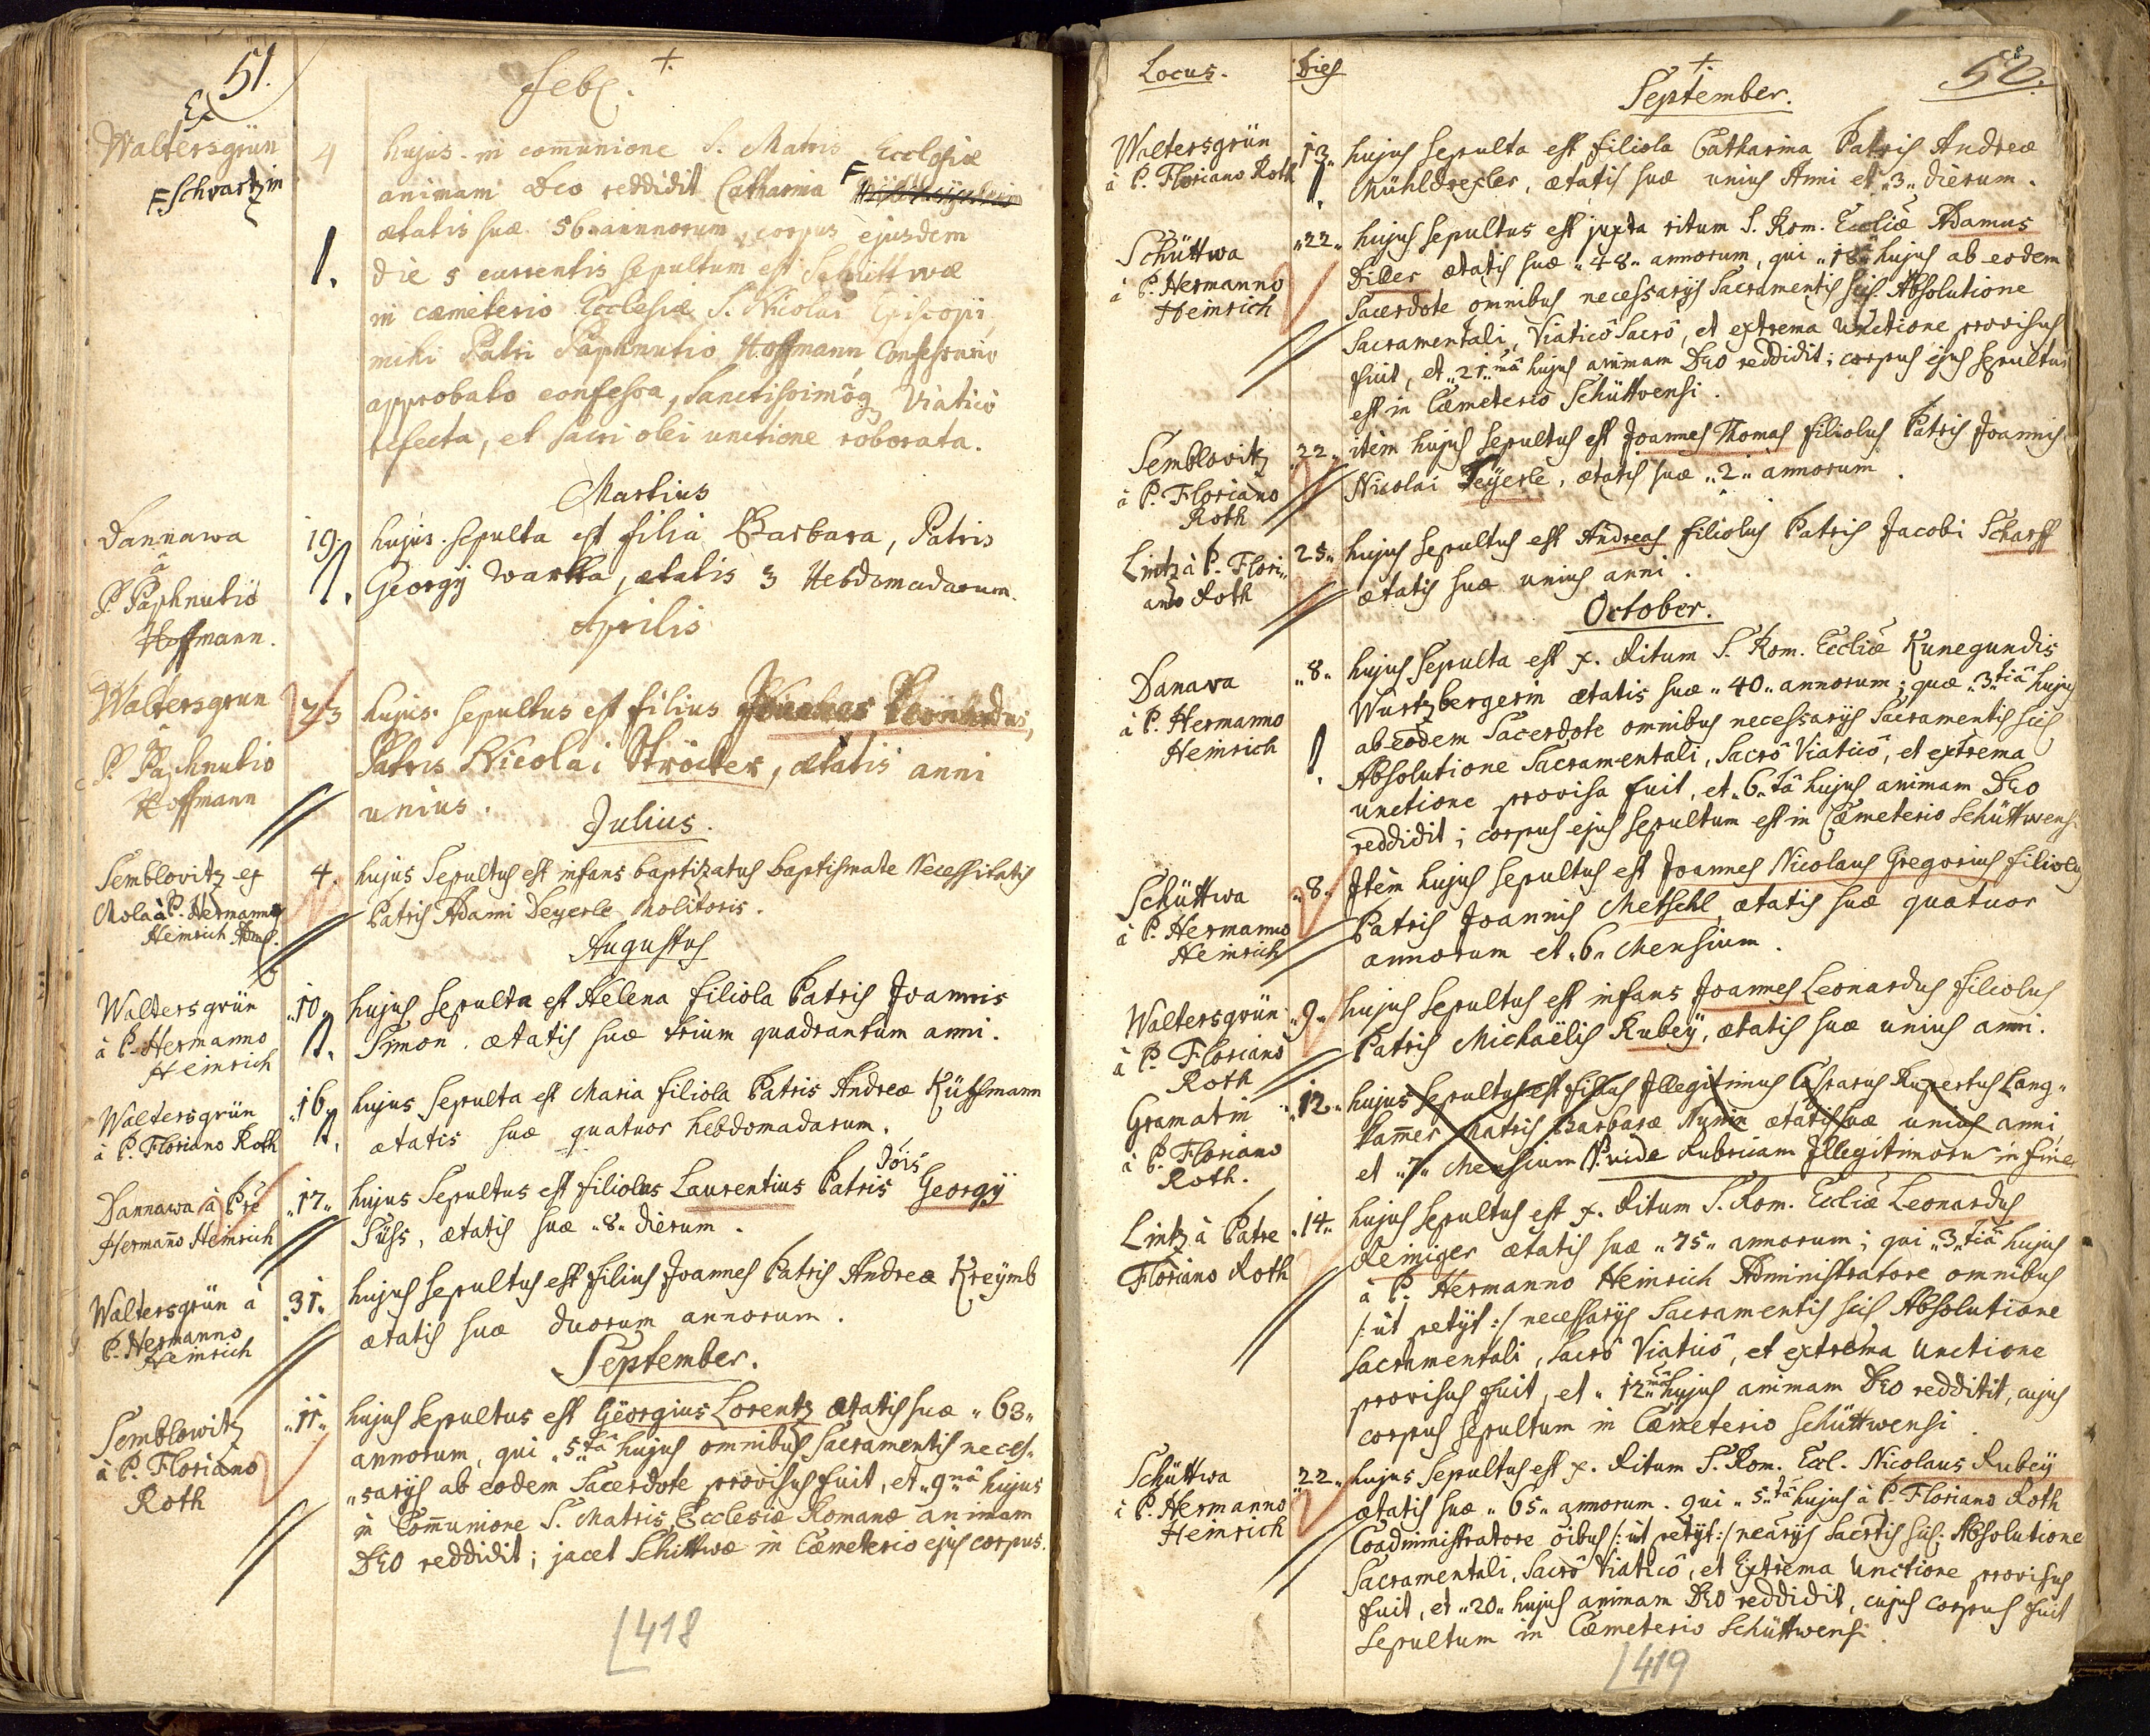 51.
+.
Feb.
Ex
Waltersgrün
F. Schvartzin
4
hujus in com̄unione S. Matris Ecclesiæ
animam Deo reddidit Catharina F
ætatis suæ 56 annnorum, corpus ejusdem
1.
die 5 currentis sepultum est Schittwæ
in cæmeterio Ecclesiæ S. Nicolai Episcopi,
mihi Patri Paphnutio Hoffmann, Confessario
approbato confessa, Sanctissimôq Viaticô
refecta, et sacri olei unctione roborata.
Martius
Dannawa
â
P. Paphnutiô
Hoffmann.
19.
1.
hujus. sepulta est filia Barbara, Patris
Georgÿ Wartha, ætatis 3 Hebdomadarum.
Aprilis
Waltersgrun
â
P. Paphnutio
Hoffmann
23
hujus. sepultus est filius Leonhardus,
Patris Nicolai Ströcker, ætatis anni
unius.
Julius.
Semblovitz ex
Mola à P. Hermanno
Heinrich
4.
hujus Sepultus est infans baptizatus baptismate Necessitatis
Patris Adami Deyerle Molitoris.
Augustus
Waltersgrün
à P. Hermanno
Heinrich
„10„
1.
hujus Sepulta est Helena filiola Patris Joannis
Simon. ætatis suæ trium quadrantum anni.
Waltersgrün
à P. Floriano Roth
„16„
1.
hujus Sepulta est Maria filiola Patris Andreæ Küffmann
ætatis suæ quatuor hebdomadarum.
Dannawa à Pre
Hermanno Heinrich
„17„
hujus Sepultus est filiolus Laurentius Patris Jois Georgÿ
Süss, ætatis suæ „8„ dierum.
Waltersgrün à
P. Hermanno
Heinrich
„31„
hujus Sepultus est filius Joannes Patris Andreæ Kreÿmb
ætatis suæ duorum annorum.
September.
Semblowitz
à P. Floriano
Roth
„11„
hujus Sepultus est Gëorgius Lorentz ætatis suæ „63„
annorum, qui „5„tâ hujus omnibus Sacramentis neces„
„sarÿs ab eodem Sacerdote provisus fuit, et „9„nâ hujus
in Com̄unione S. Matris Ecclesiæ Romanæ animam
DEO reddidit; jacet Schittwæ in Cæmeterio ejus corpus.
418
Locus.
Dies
+.
September.
52.
Waltersgrün
à P. Floriano Roth
13„
1.
hujus Sepulta est filiola Catharina Patris Andreæ
Mühldrexler, ætatis suæ unius Anni et „3„ dierum.
Schüttwa
à P. Hermanno
Heinrich
„22„
hujus Sepultus est juxta ritum S. Rom. Eccliæ Adamus
Diller ætatis suæ „48„ annorum, qui „18„â hujus ab eodem
Sacerdote omnibus necessarÿs Sacramentis scil. Absolutione
Sacramentali, Viaticô Sacrô, et extrema unctione provisus
fuit, et „21„mâ hujus animam DEO reddidit; corpus ejus sepultum
est in Cæmeterio Schüttvensi.
Semblovitz
à P. Floriano
Roth
„22„
item hujus Sepultus est Joannes Thomas filiolus Patris Joannis
Nicolai Teyerle, ætatis suæ „2„ annorum.
Lintz à P. Flori„
ano Roth
25„
hujus Sepultus est Andreas filiolus Patris Jacobi Scharff
ætatis suæ unius anni.
October.
Danawa
à P. Hermanno
Heinrich
„8„
1.
hujus Sepulta est x. Ritum S. Rom. Eccliæ Kunegundis
Wurtzbergerin ætatis suæ „40„ annorum; quæ „3„tiâ hujus
ab eodem Sacerdote omnibus necessarÿs Sacramentis scil
Absolutione Sacramentali, Sacrô Viaticô, et extrema
unctione provisa fuit, et „6„tâ hujus animam DEO
reddidit; corpus ejus sepultum est in Cæmeterio Schüttwensi
Schüttwa
à P. Hermanno
Heinrich
„8„
Item hujus Sepultus est Joannes Nicolaus Gregorius filiolus
Patris Joannis Metschl, ætatis suæ quatuor
annorum et „6„ Mensium.
Waltersgrün
à P. Floriano
Roth
„9„
hujus Sepultus est infans Joannes Leonardus filiolus
Patris Michaëlis Rubeÿ, ætatis suæ unius anni.
Gramatin
à P. Floriano
Roth.
„12„
hujus Sepultus est filius Illegitimus Casparus Rupertus Lang„
kam̄er Matris Barbaræ Nunin ætatis suæ unius anni
et „7„ Mensium N: vide Rubricam Illegitimoru in fine
Lintz à Patre
Floriano Roth
„14„
hujus Sepultus est x. Ritum S. Rom. Eccliæ Leonardus
Reiniger ætatis suæ „75„ annorum; qui „3„tiâ hujus
à P. Hermanno Heinrich Administratore omnibus
/: ût petÿt :/ necessarÿs Sacramentis scil Absolutione
Sacramentali, Sacrô Viaticô, et extrema Unctione
provisus fuit, et „12„mâ hujus animam DEO redditit, cujus
corpus sepultum in Cæmeterio Schüttwensi.
Schüttwa
à P. Hermanno
Heinrich
„22„
hujus Sepultus est x. Ritum S. Rom. Eccl. Nicolaus Rubeÿ
ætatis suæ „65„ annorum. qui „5„tâ hujus à P. Floriano Roth
Coadministratore oibus /: ût petÿt :/ neārÿs Sacrtis scil. Absolutione
Sacramentali, Sacrô Viaticô, et Extrema Unctione provisus
fuit, et „20„ hujus animam DEO reddidit, cujus corpus fuit
sepultum in Cæmeterio Schüttwensi.
419